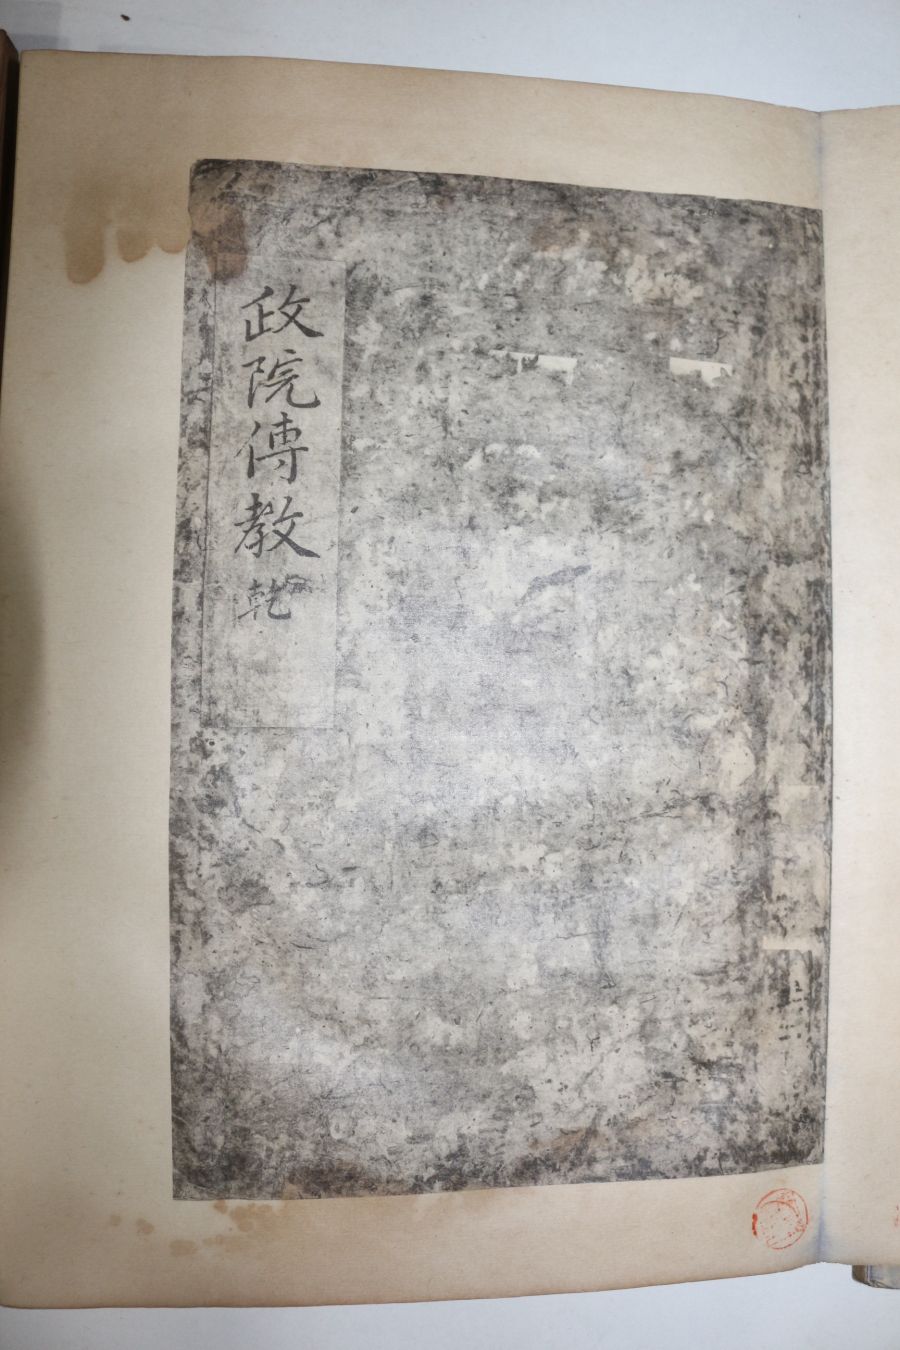 政院傳教 乾